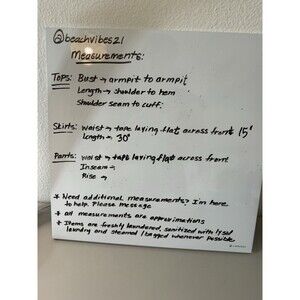 @beachvibes21
Measurements:
Tops: Bust → armpit to armpit
Length → shoulder to hem
Shoulder seam to cuff:
Skirts: waist → tape laying flat across front 15"
Length: 30"
Pants: waist → tape laying flat across front
Inseam →
Rise →
* Need additional measurements? I'm here
to help. Please message
* all measurements are approximations
* Items are freshly laundered, sanitized with lysol
laundry and steamed / bagged whenever possible